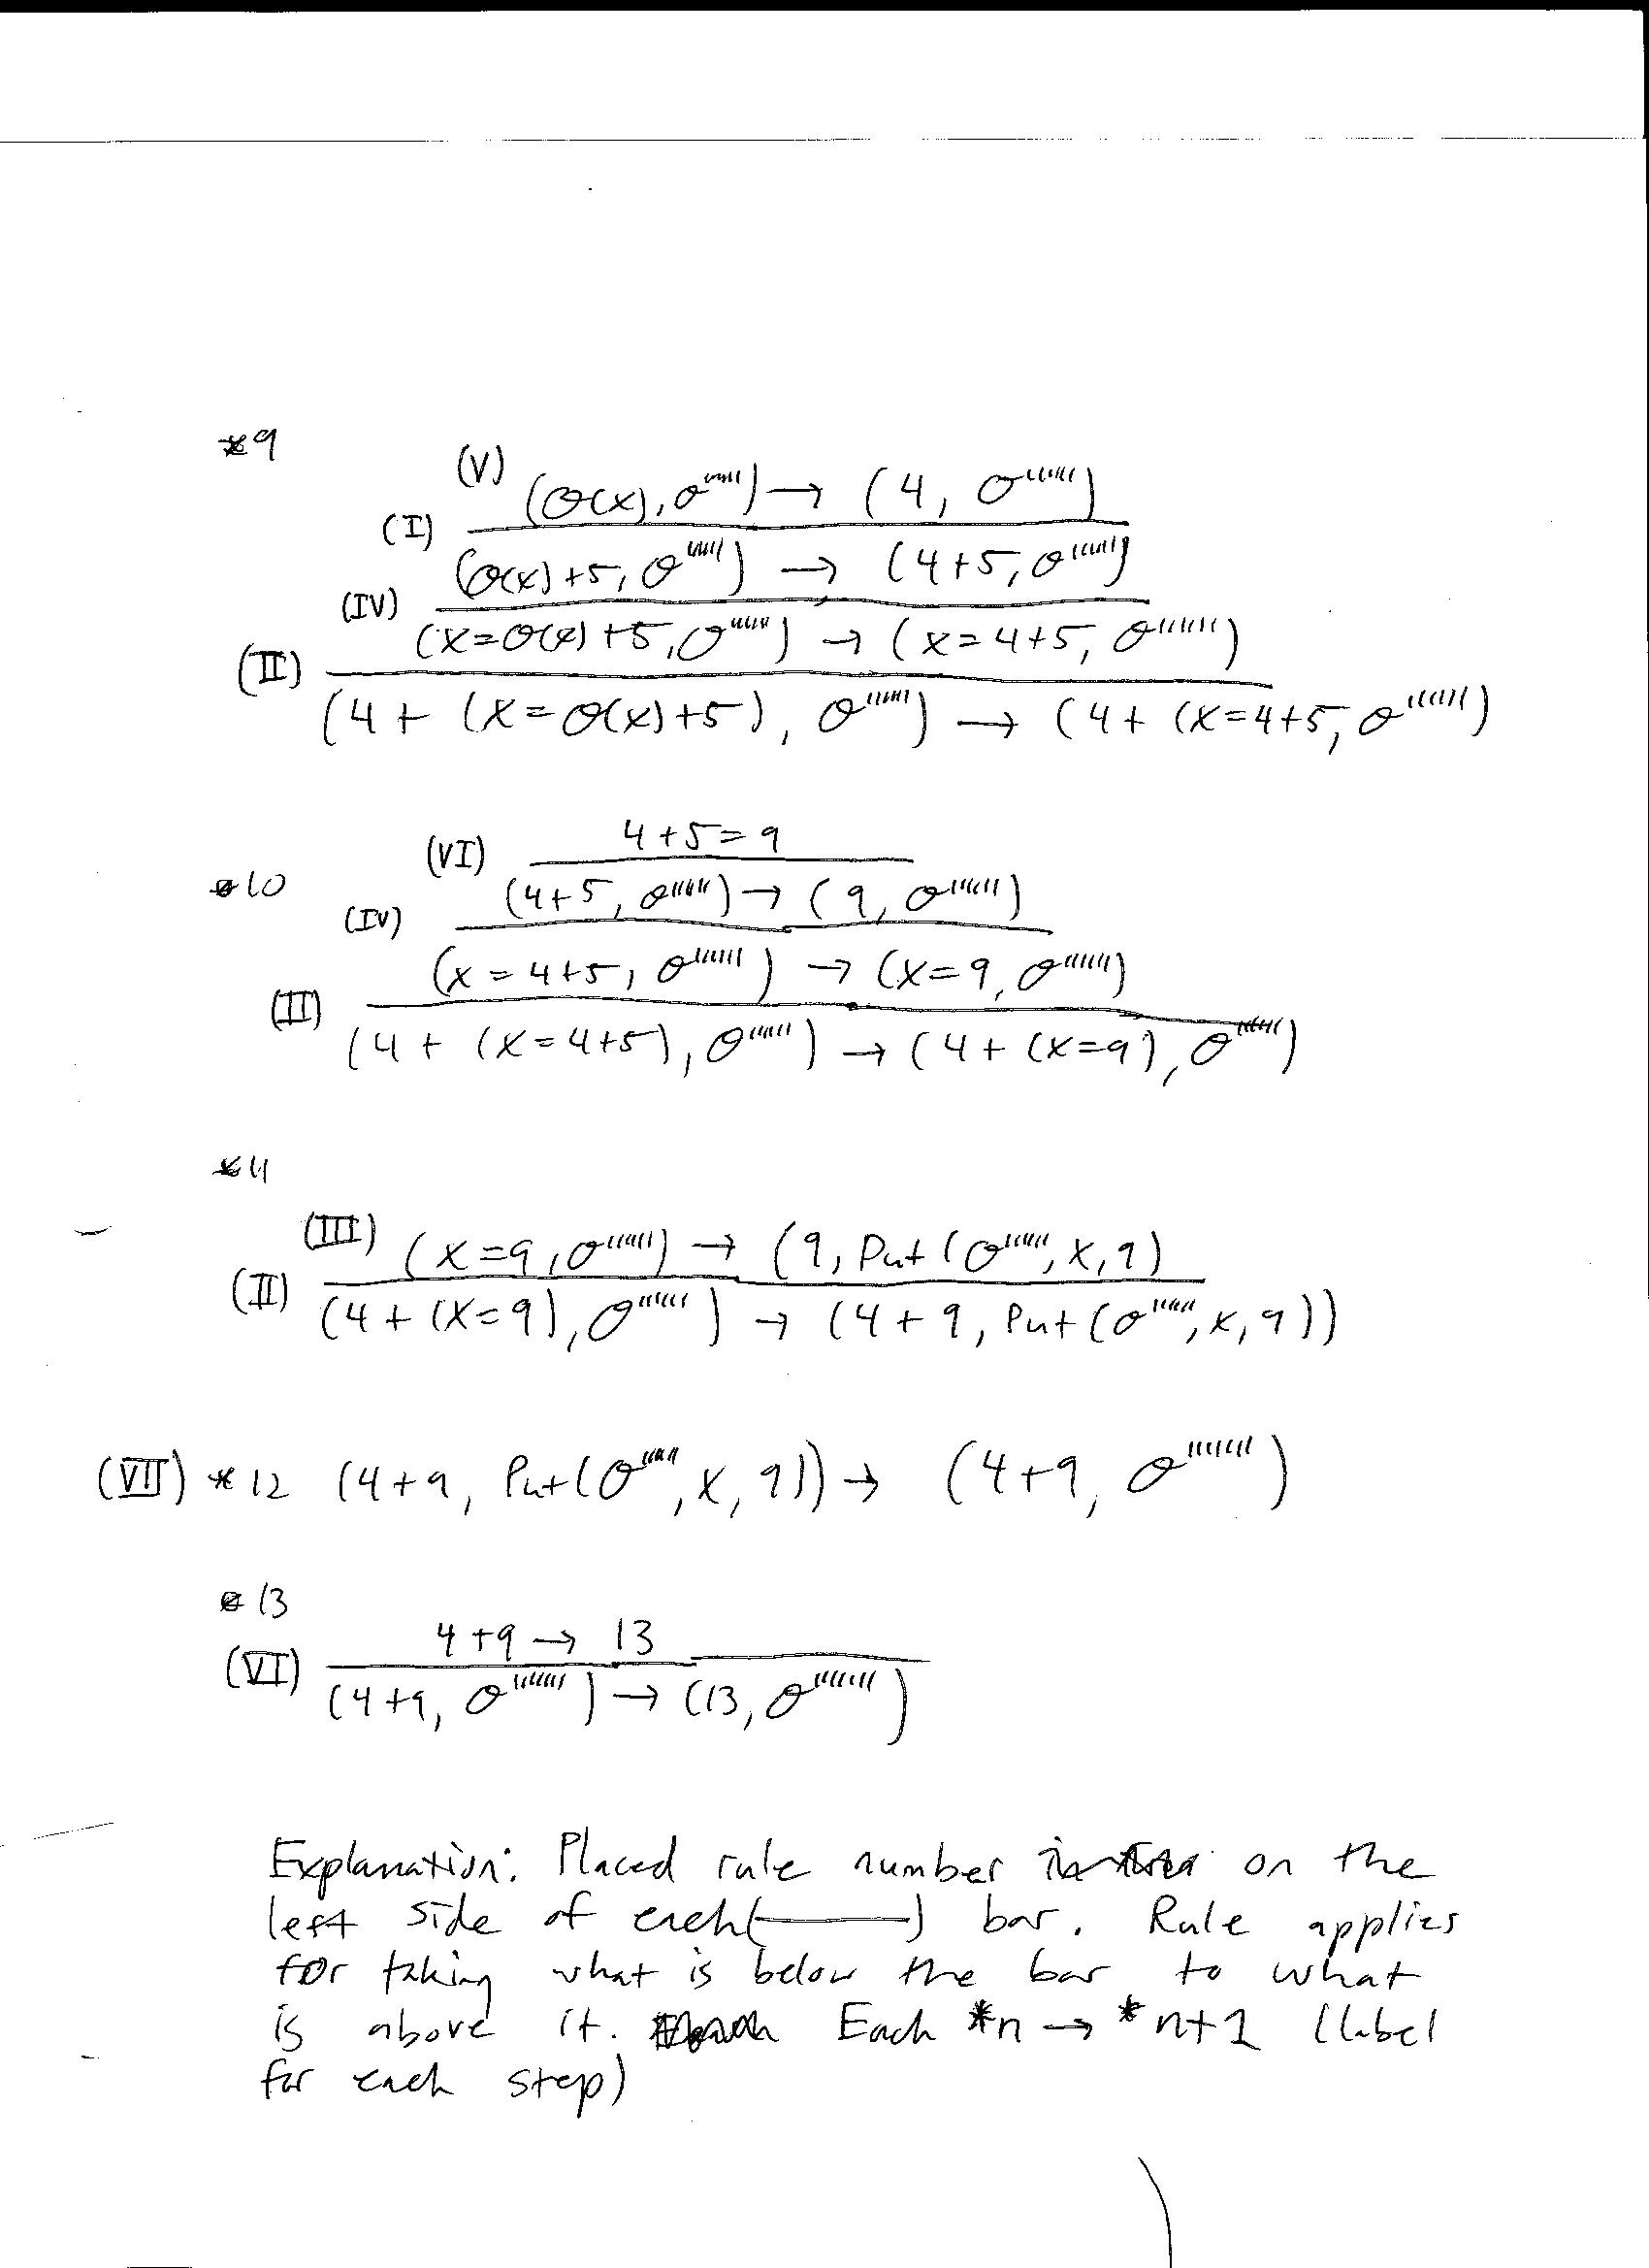 *9
(V) (σ(x), σ'''''') → (4, σ'''''')
(I) (σ(x)+5, σ'''''') → (4+5, σ'''''')
(IV) (x=σ(x)+5, σ'''''') → (x=4+5, σ'''''')
(II) (4+(x=σ(x)+5), σ'''''') → (4+(x=4+5, σ'''''')
(VI) 4+5=9
*10 (4+5, σ'''''') → (9, σ'''''')
(IV) (x=4+5, σ'''''') → (x=9, σ'''''')
(II) (4+(x=4+5), σ'''''') → (4+(x=9), σ'''''')
*11
(III) (x=9, σ'''''') → (9, Put(σ'''''', x, 9)
(II) (4+(x=9), σ'''''') → (4+9, Put(σ'''''', x, 9))
(VII) *12 (4+9, Put(σ'''''', x, 9)) → (4+9, σ''''''')
*13
4+9 → 13
(VI) (4+9, σ''''''') → (13, σ''''''')
Explanation: Placed rule number on the
left side of each (———) bar. Rule applies
for taking what is below the bar to what
is above it. Each *n → *n+1 (label
for each step)